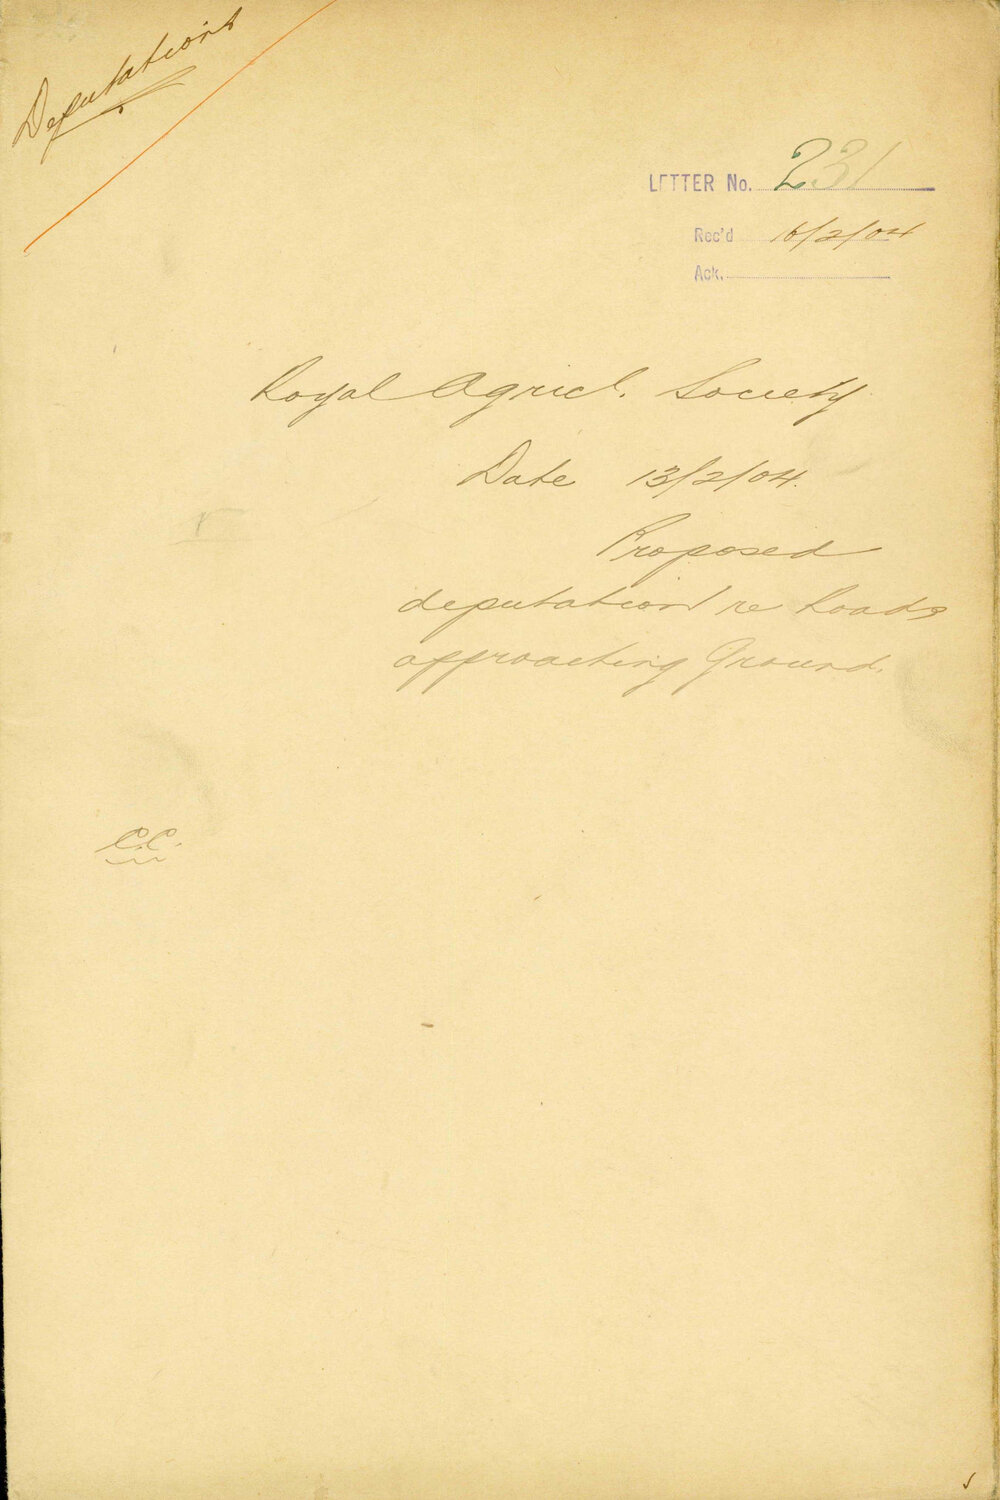 Deputations
LETTER No. 231
Rec'd 16/2/04
Ack.
Royal Agricl. Society
Date 13/2/04.
Proposed
deputation re Roads
approaching Ground.
C.C.